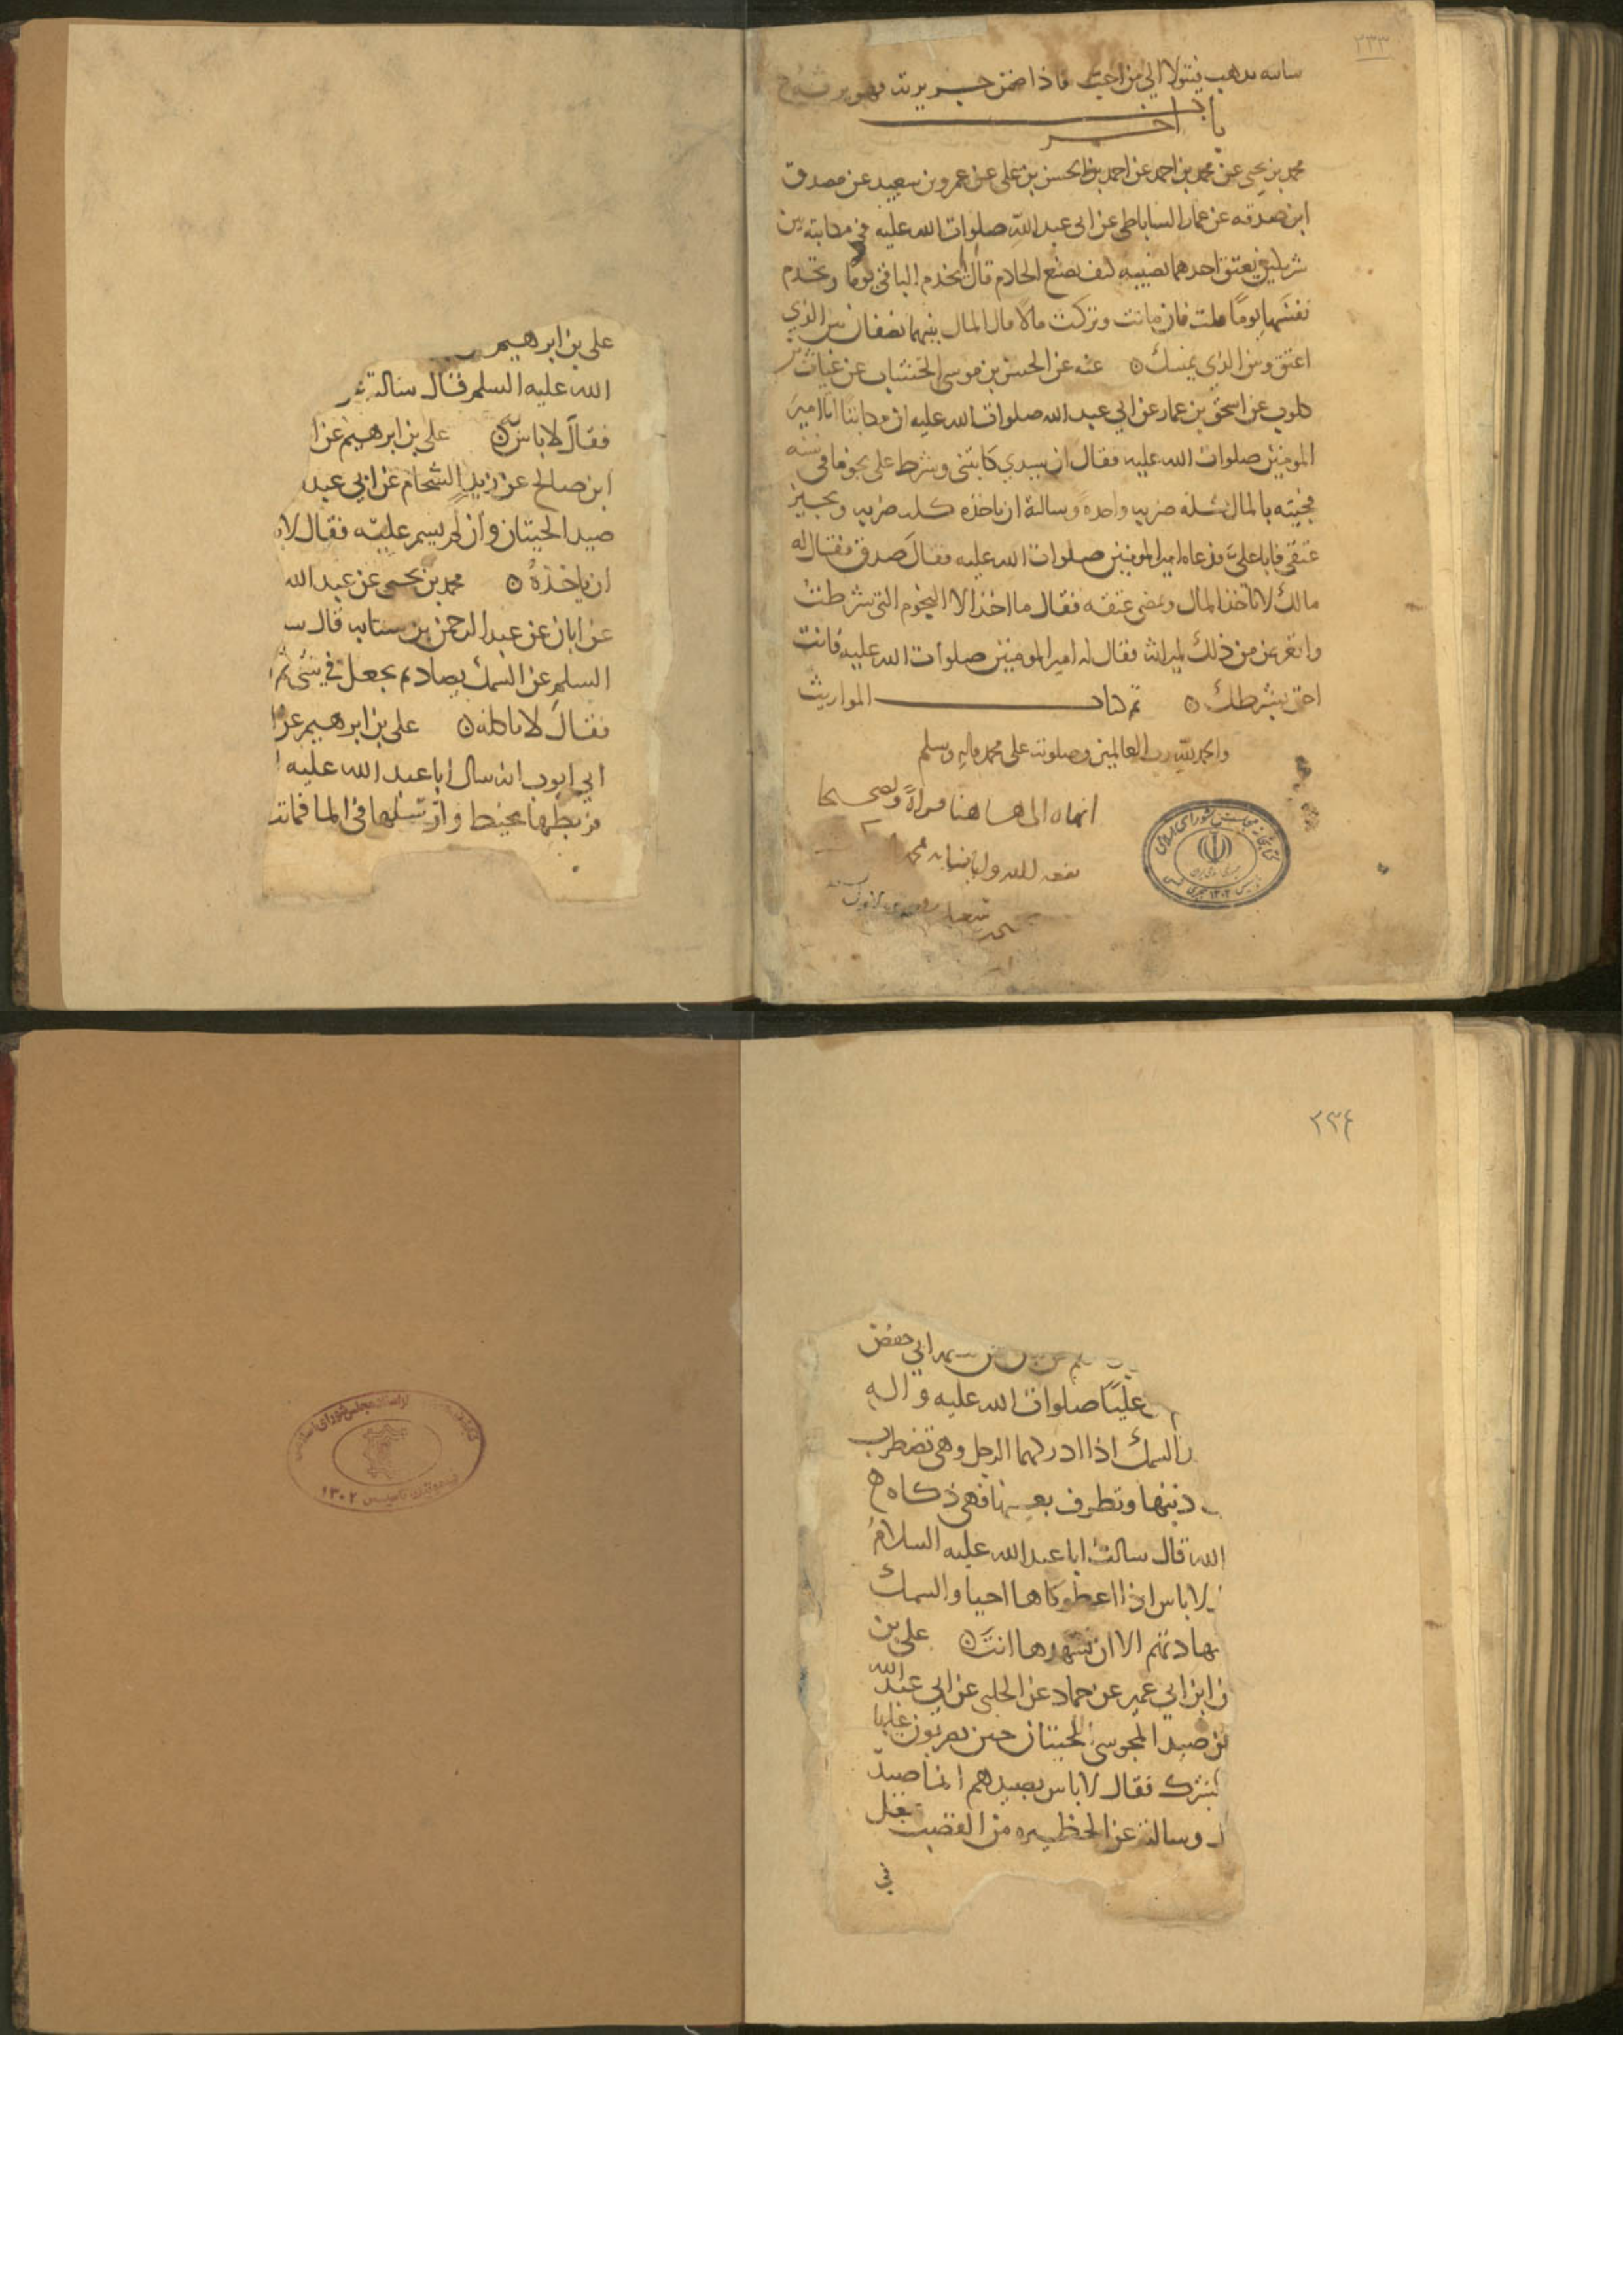 ٢٣٣
يذهب فيتولا الي من احب فاذا ضمن جريرته فهو يرثه
باب اخر
محمد بن يحيى عن محمد بن احمد عن احمد بن الحسن بن علي عن عمرو بن سعيد عن مصدق
ابن صدقه عن عمار الساباطي عن ابي عبد الله صلوات الله عليه في مكاتبه بين
شريكين يعتق احدهما نصيبه كيف تصنع الخادم قال تخدم الباقي يوما وتخدم
نفسها يوما قلت فان ماتت وتركت مالا قال المال بينهما نصفان بين الذي
اعتق وبين الذي يمسك ٥ عنه عن الحسن بن موسى الخشاب عن غياث بن
كلوب عن اسحق بن عمار عن ابي عبد الله صلوات الله عليه ان مكاتبا اتا امير
المومنين صلوات الله عليه فقال ان سيدي كاتبني وشرط علي نجوما في سنه
فجيته بالمال كله ضربه واحدة وسالته ان ياخذه كله ضربه ويجيز
عتقي فابا علي فدعاه امير المومنين صلوات الله عليه فقال صدق فقال له
مالك لا تاخذ المال وتمضي عتقه فقال ما اخذ الا النجوم التي شرطت
واتعرض من ذلك لميراثه فقال له امير المومنين صلوات الله عليه فانت
احق بشرطك ٥ تم كتاب المواريث
والحمد لله رب العالمين وصلوته على محمد واله وسلم
انهاه الى هاهنا قراة وتصحيحا
علي بن ابرهيم
الله عليه السلم فقال سالته
فقال لا باس ٥ علي بن ابرهيم عن ا
ابن صالح عن زيد الشحام عن ابي عبد
صيد الحيتان وان لم يسم عليه فقال لا
ان ياخذه ٥ محمد بن يحيى عن عبد الله
عن ابان عن عبد الرحمن بن سيابه قال س
السلم عن السمك يصاد ثم يجعل في شي ثم
فقال لا تاكله ٥ علي بن ابرهيم عن ا
ابي ايوب انه سال ابا عبد الله عليه ا
فربطها بخيط وارسلها في الما فماتت
٢٣٤
ابي حفص
عليا صلوات الله عليه واله
السمك اذا ادركها الرجل وهي تضطرب
ذنبها وتطرف بعينها فهي ذكاه
الله قال سالت ابا عبد الله عليه السلام
لا باس اذا اعطوكاها احيا والسمك
شهادتهم الا ان تشهدها انت ٥ علي بن
ن ابن ابي عمير عن حماد عن الحلبي عن ابي عبد الله
عن صيد المجوسي للحيتان حين يضربون عليها
الشرك فقال لا باس بصيدهم انما صيد
وسالته عن الحظيره من القصب تجعل
في